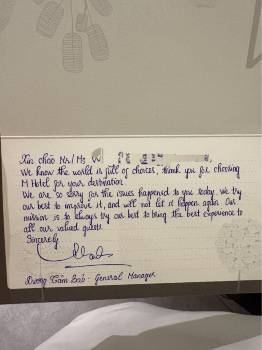 Xin chào Mr/Ms
We know the world is full of choices, thank you for choosing
M Hotel for your destination
We are so sorry for the issues happened to you today. We try
our best to improve it, and will not let it happen again. Our
mission is to always try our best to bring the best experience to
all our valued guests.
Sincerely
Dương Cẩm - General Manager